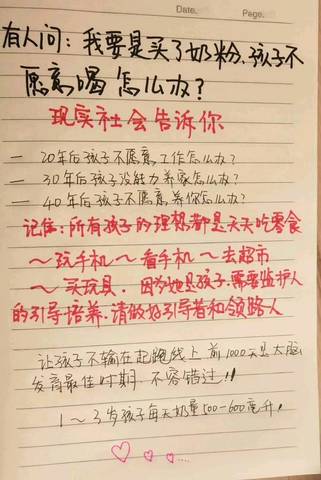 Date.        Page.
有人问：我要是买了奶粉，孩子不
愿意喝怎么办？
现实社会告诉你
一 20年后孩子不愿意工作怎么办？
一 30年后孩子没能力养家怎么办？
一 40年后孩子不愿意养你怎么办？
记住：所有孩子的理想都是天天吃零食
～玩手机～看手机～去超市
～买玩具。因为她是孩子，需要监护人
的引导培养，请做好引导者和领路人
让孩子不输在起跑线上前1000天是大脑
发育最佳时期，不容错过！！
1～3岁孩子每天奶量500-600毫升，